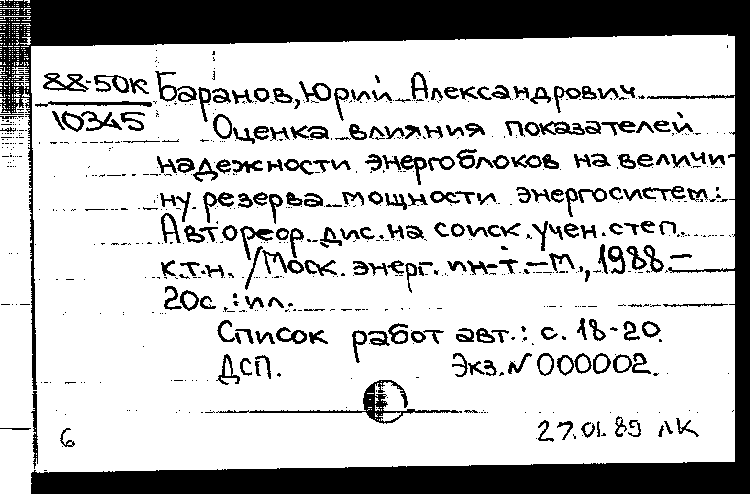 88-50к Баранов, Юрий Александрович
10345 Оценка влияния показателей
надежности энергоблоков на величи-
ну резерва мощности энергосистем:
Автореф. дис. на соиск. учен. степ.
к.т.н. / Моск. энерг. ин-т. – М., 1988. –
20с.: ил.
Список работ авт.: с. 18-20.
ДСП. Экз. N 000002.
6 27.01.89 ЛК